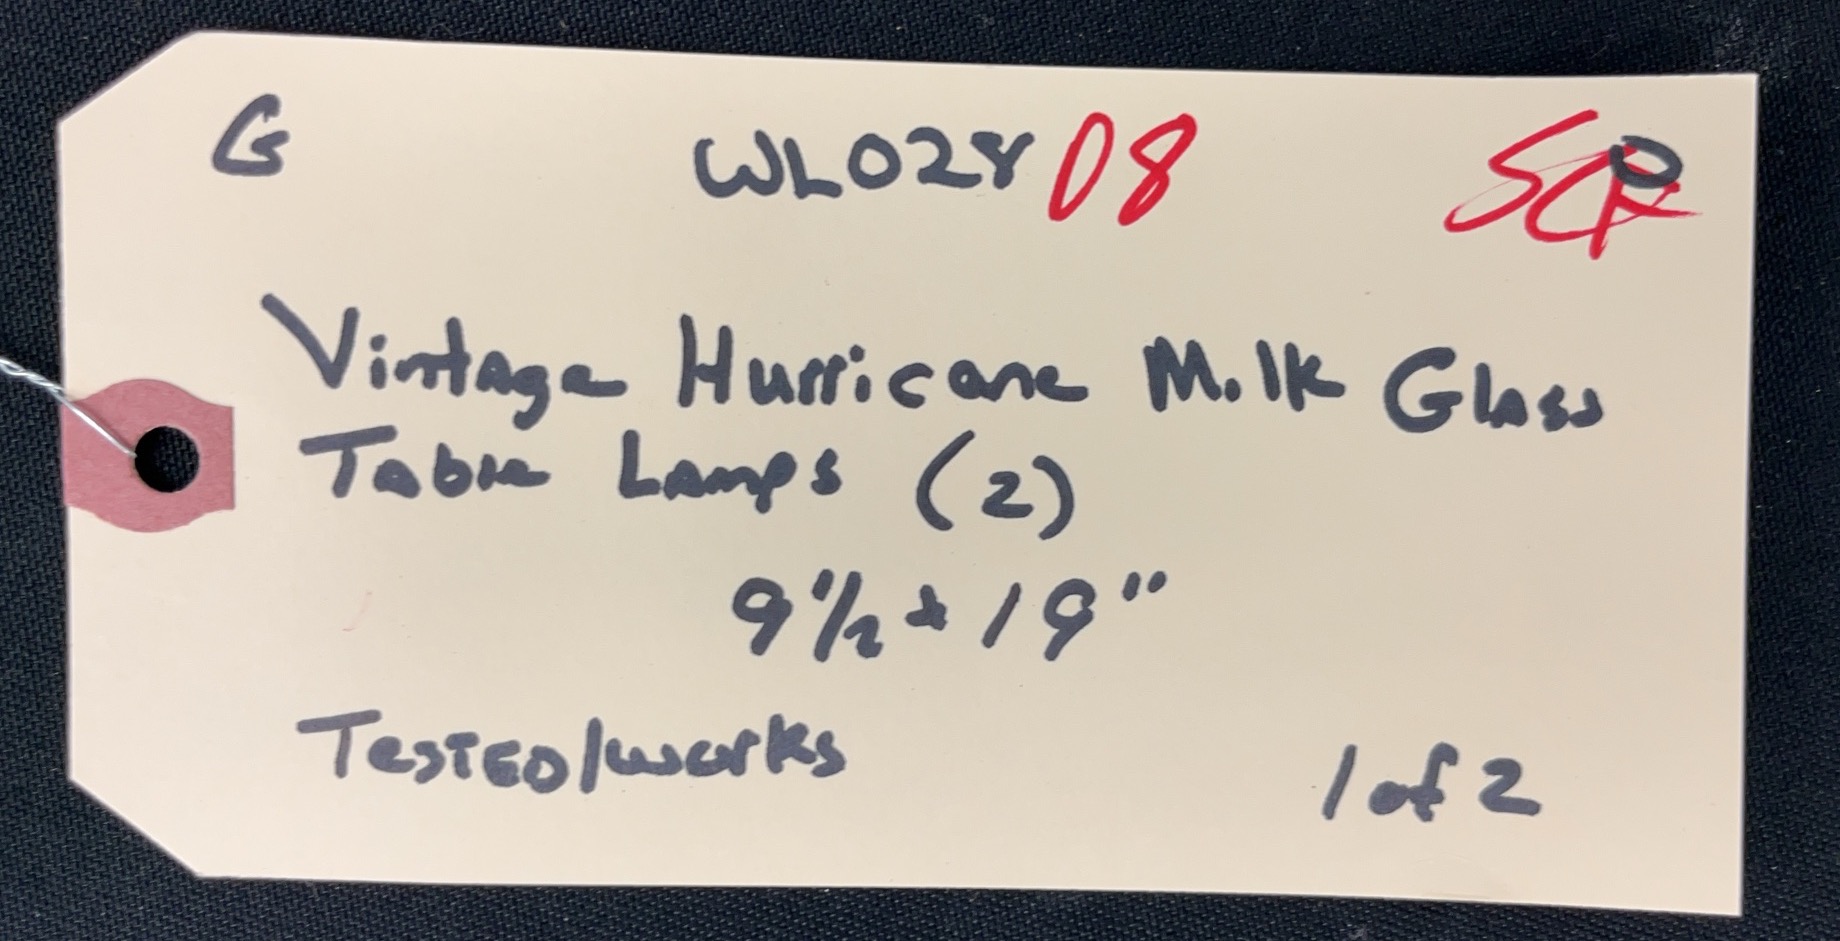 G WL028 08
Vintage Hurricane Milk Glass
Table Lamps (2)
9½ + 19"
Tested/works 1 of 2